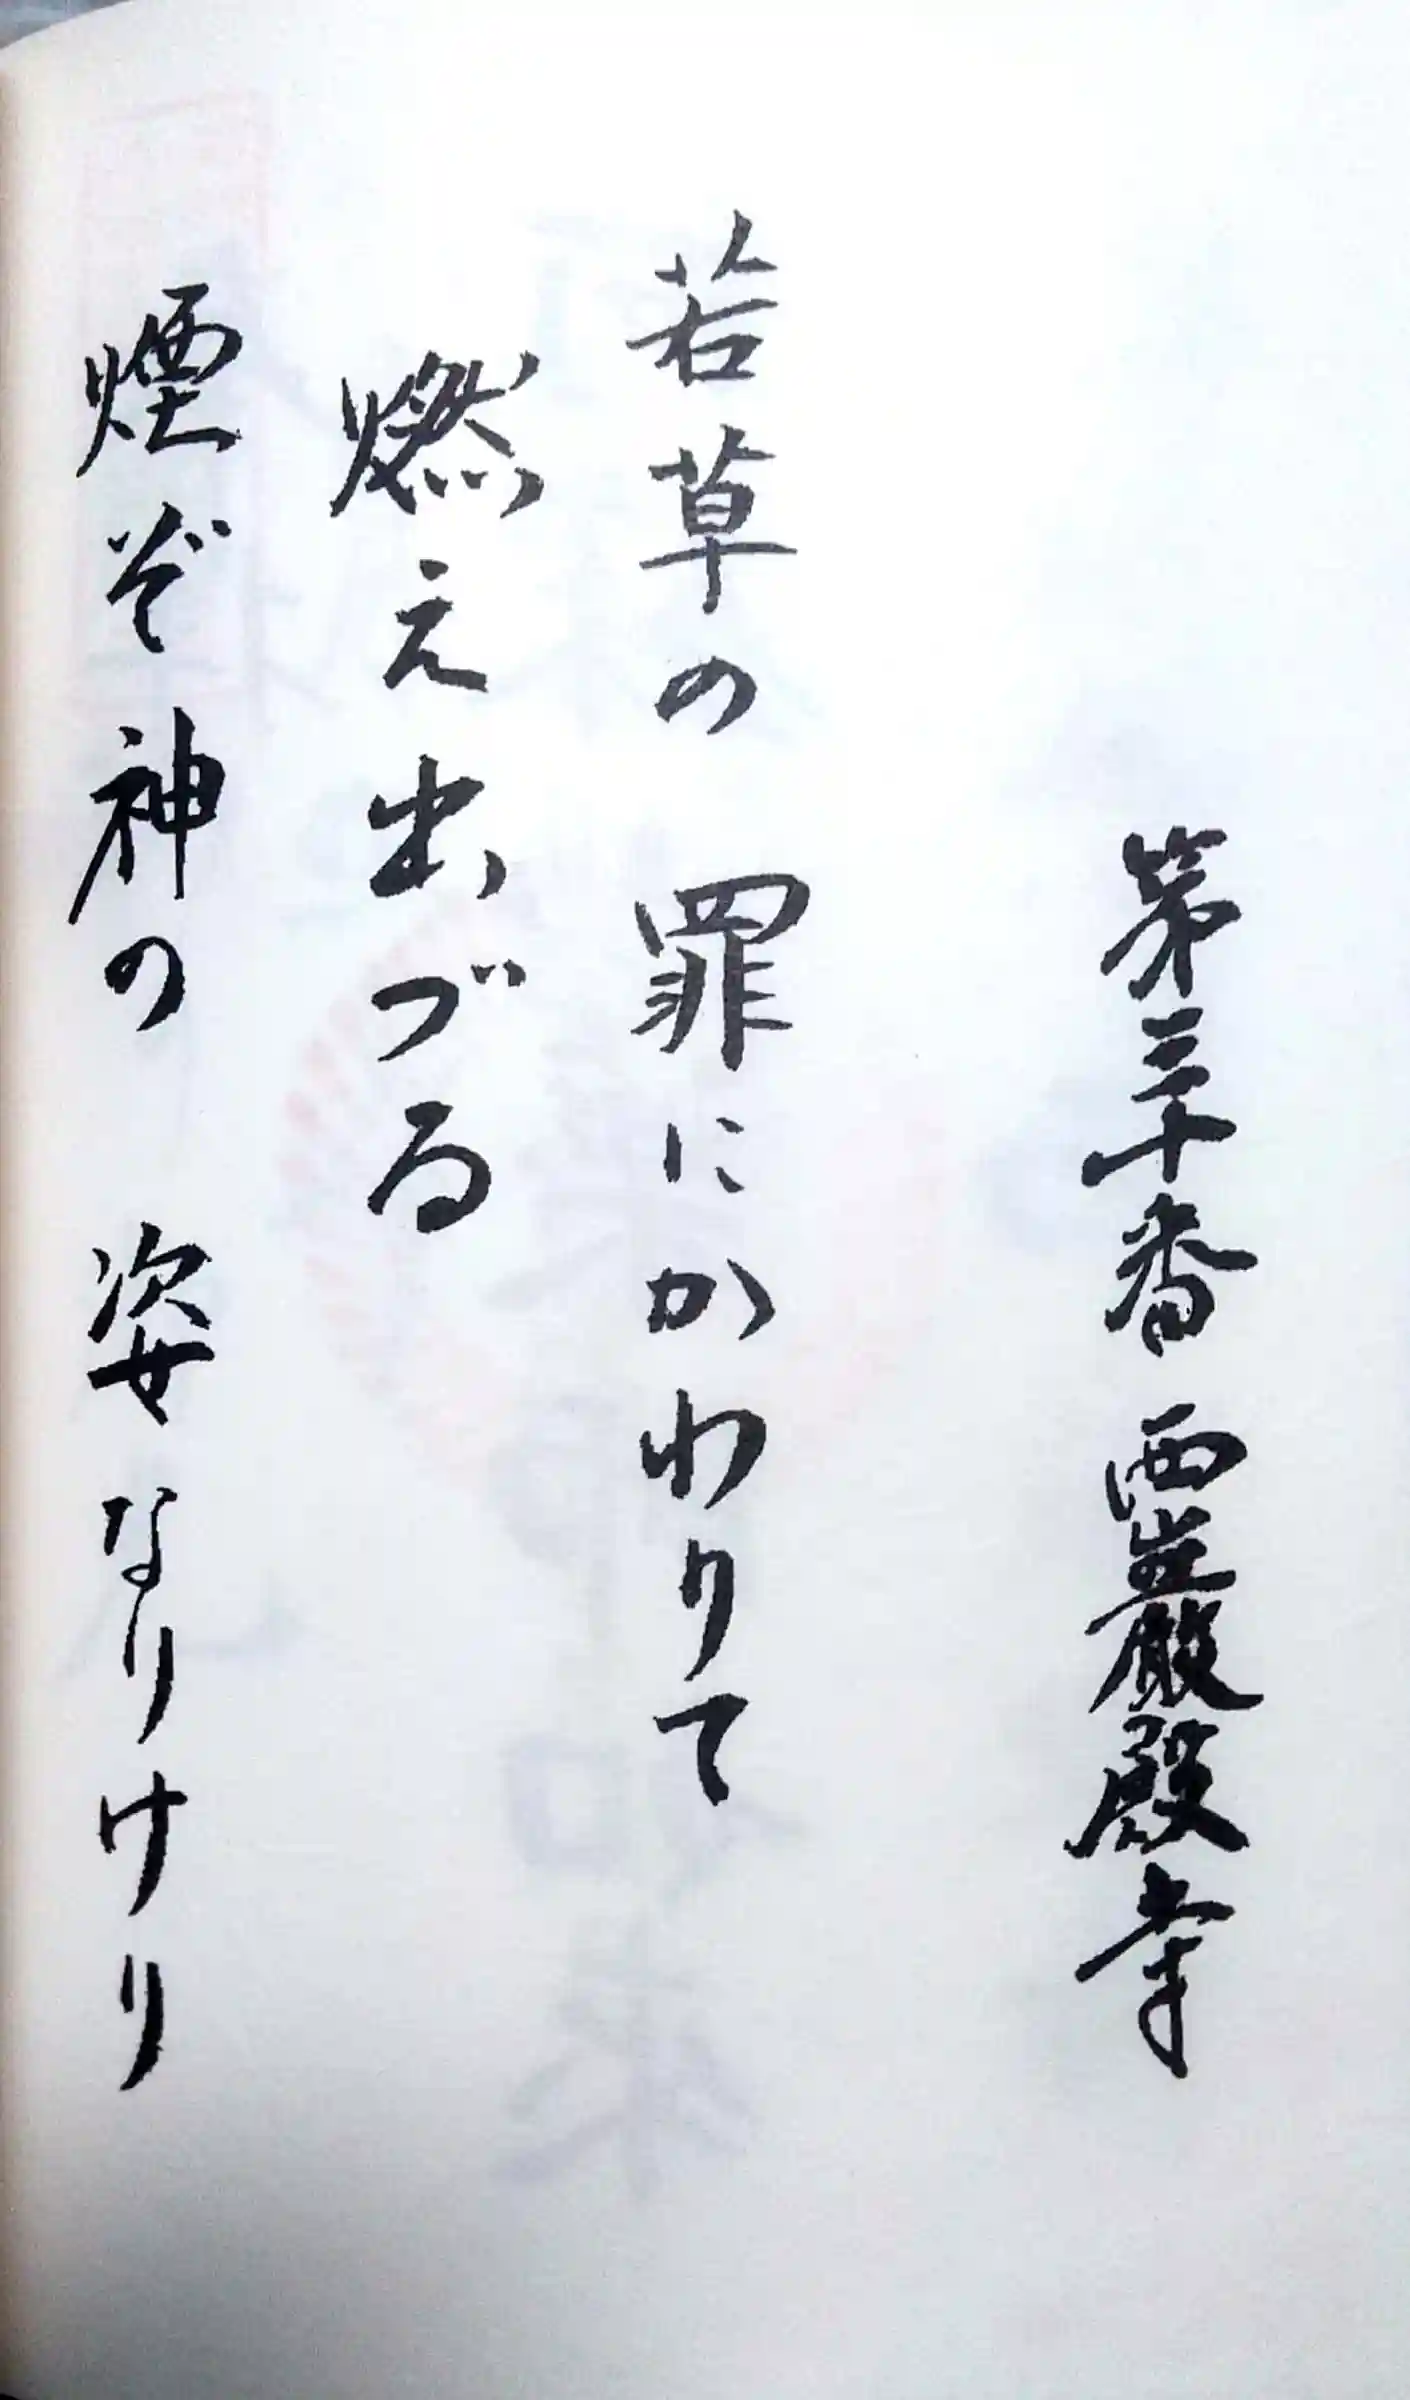 第三十番 西巖殿寺
若草の 罪にかわりて
燃え出づる
煙ぞ神の 姿なりけり